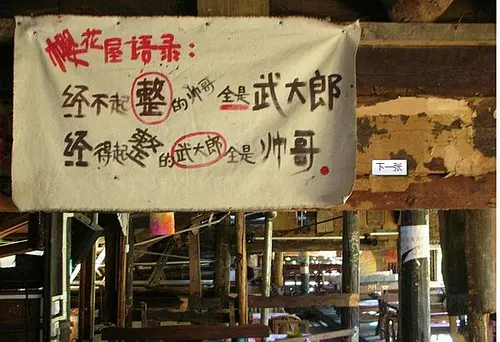 樱花屋语录：
经不起整的帅哥全是武大郎
经得起整的武大郎全是帅哥.
下一张